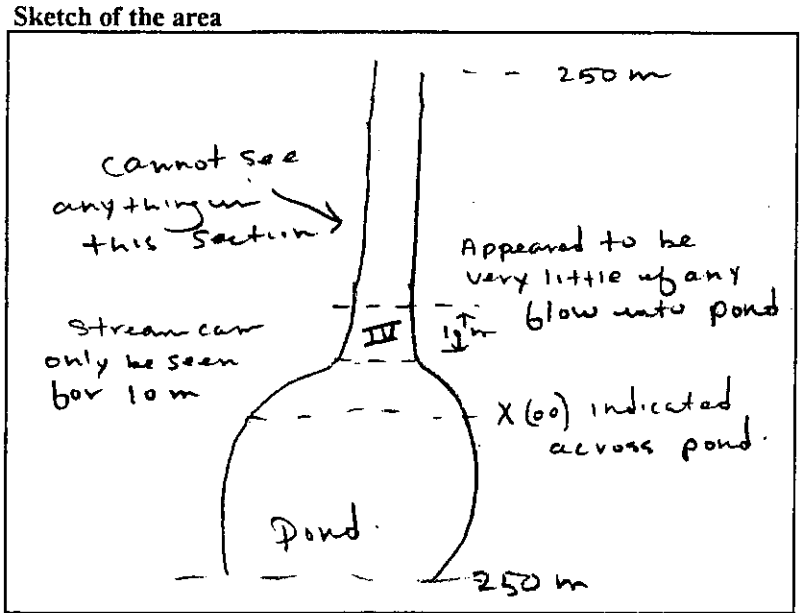 Sketch of the area
250 m
Cannot see
anything in
this section
Appeared to be
very little if any
flow into pond
IV
10 m
Stream can
only be seen
for 10 m
X(00) indicated
across pond.
Pond.
250 m